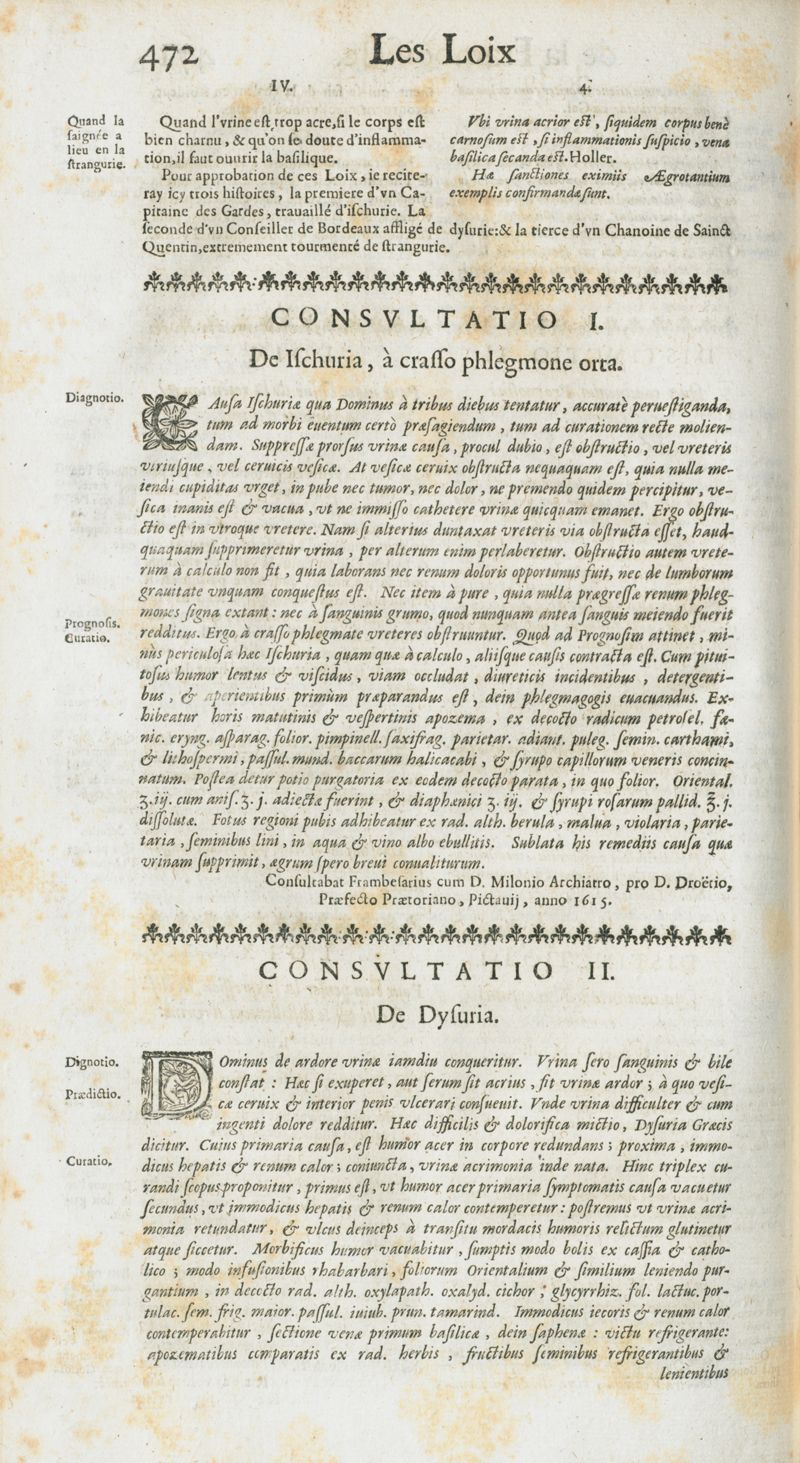 472
Les Loix
IV.
Quand la
saignée a
lieu en la
strangurie.
Quand l'vrine est trop acre, si le corps est
bien charnu, & qu'on se doute d'inflamma-
tion, il faut ouurir la basilique.
Pour approbation de ces Loix, ie recite-
ray icy trois histoires, la premiere d'vn Ca-
pitaine des Gardes, trauaillé d'ischurie. La
4.
Vbi vrina acrior est, siquidem corpus benè
carnosum est, si inflammationis suspicio, vena
basilica secanda est. Holler.
Hæ sanctiones eximiis Ægrotantium
exemplis confirmandæ sunt.
seconde d'vn Conseiller de Bordeaux affligé de dysurie: & la tierce d'vn Chanoine de Sainct
Quentin, extremement tourmenté de strangurie.
CONSVLTATIO I.
De Ischuria, à crasso phlegmone orta.
Diagnotio.
CAusa Ischuriæ qua Dominus à tribus diebus tentatur, accuratè peruestiganda,
tum ad morbi euentum certò præsagiendum, tum ad curationem rectè molien-
dam. Suppressæ prorsus vrinæ causa, procul dubio, est obstructio, vel vreteris
vtriusque, vel ceruicis vesicæ. At vesicæ ceruix obstructa nequaquam est, quia nulla me-
iendi cupiditas vrget, in pube nec tumor, nec dolor, ne premendo quidem percipitur, ve-
sica inanis est & vacua, vt ne immisso cathetere vrinæ quicquam emanet. Ergo obstru-
ctio est in vtroque vretere. Nam si alterius duntaxat vreteris via obstructa esset, haud-
quaquam supprimeretur vrina, per alterum enim perlaberetur. Obstructio autem vrete-
rum à calculo non fit, quia laborans nec renum doloris opportunus fuit, nec de lumborum
grauitate vnquam conquestus est. Nec item à pure, quia nulla prægressæ renum phleg-
mones signa extant: nec à sanguinis grumo, quod nunquam antea sanguis meiendo fuerit
Prognosis.
Curatio.
redditus. Ergo à crasso phlegmate vreteres obstruuntur. Quod ad Prognosim attinet, mi-
nùs periculosa hæc Ischuria, quam quæ à calculo, aliisque causis contracta est. Cum pitui-
tosus humor lentus & viscidus, viam occludat, diureticis incidentibus, detergenti-
bus, & aperientibus primùm præparandus est, dein phlegmagogis euacuandus. Ex-
hibeatur horis matutinis & vespertinis apozema, ex decocto radicum petrosel. fœ-
nic. eryng. asparag. folior. pimpinell. saxifrag. parietar. adiant. puleg. semin. carthami,
& lithospermi, passul. mund. baccarum halicacabi, & syrupo capillorum veneris concin-
natum. Postea detur potio purgatoria ex eodem decocto parata, in quo folior. Oriental.
ʒ. iij. cum anis. ʒ. j. adiectæ fuerint, & diaphœnici ʒ. iij. & syrupi rosarum pallid. ℥. j.
dissolutæ. Fotus regioni pubis adhibeatur ex rad. alth. berula, malua, violaria, parie-
taria, seminibus lini, in aqua & vino albo ebullitis. Sublata his remediis causa quæ
vrinam supprimit, ægrum spero breui conualiturum.
Consultabat Frambesarius cum D. Milonio Archiatro, pro D. Droëtio,
Præfecto Prætoriano, Pictauij, anno 1615.
CONSVLTATIO II.
De Dysuria.
Dignotio.
DOminus de ardore vrinæ iamdiu conqueritur. Vrina sero sanguinis & bile
constat: Hæc si exuperet, aut serum sit acrius, fit vrinæ ardor; à quo vesi-
Prædictio.
cæ ceruix & interior penis vlcerari consueuit. Vnde vrina difficulter & cum
ingenti dolore redditur. Hæc difficilis & dolorifica mictio, Dysuria Græcis
dicitur. Cuius primaria causa, est humor acer in corpore redundans; proxima, immo-
Curatio.
dicus hepatis & renum calor; coniuncta, vrinæ acrimonia inde nata. Hinc triplex cu-
randi scopus proponitur, primus est, vt humor acer primaria symptomatis causa vacuetur
secundus, vt immodicus hepatis & renum calor contemperetur: postremus vt vrinæ acri-
monia retundatur, & vlcus deinceps à transitu mordacis humoris relictum glutinetur
atque siccetur. Morbificus humor vacuabitur, sumptis modo bolis ex cassia & catho-
lico; modo infusionibus rhabarbari, foliorum Orientalium & similium leniendo pur-
gantium, in decocto rad. alth. oxylapath. oxalyd. cichor, glycyrrhiz. fol. lactuc. por-
tulac. sem. frig. maior. passul. iuiub. prun. tamarind. Immodicus iecoris & renum calor
contemperabitur, sectione venæ primum basilicæ, dein saphenæ: victu refrigerante:
apozematibus comparatis ex rad. herbis, fructibus seminibus refrigerantibus &
lenientibus